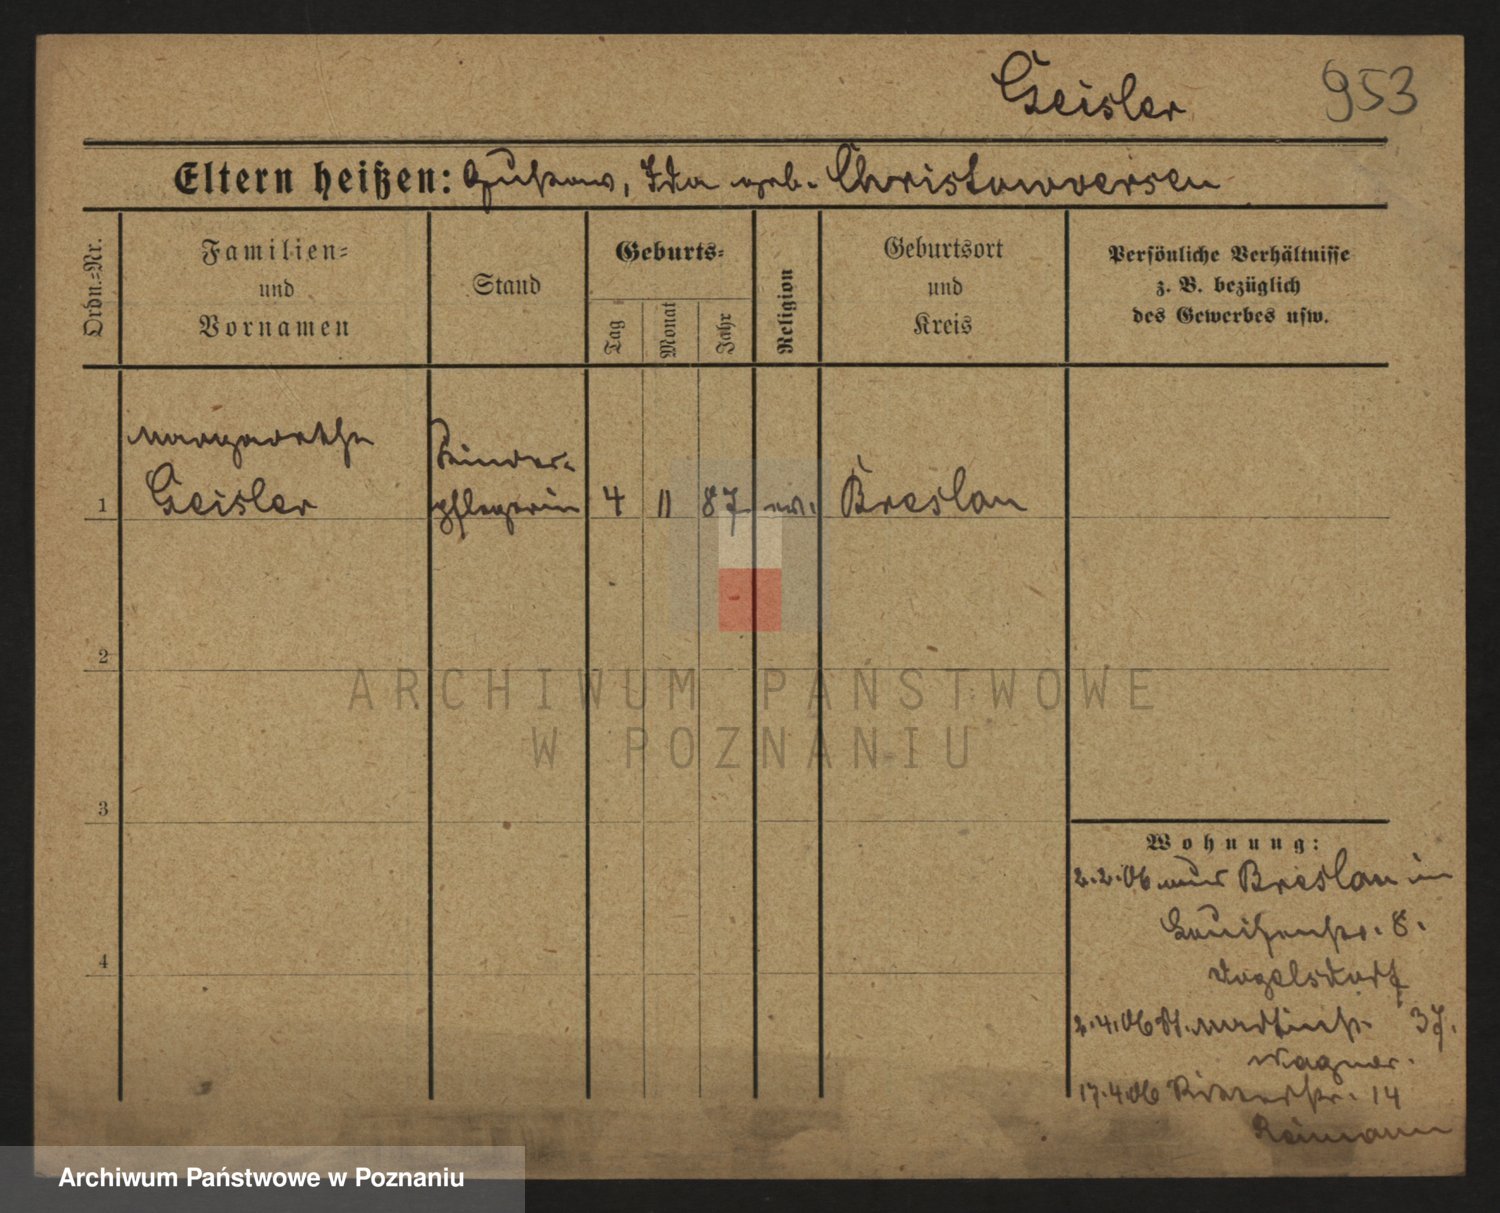 Geisler 953
Eltern heißen: Gustav, Ida geb. Christowoersen
Ordn.-Nr.
Familien-
und
Vornamen
Stand
Geburts-
Tag
Monat
Jahr
Religion
Geburtsort
und
Kreis
Persönliche Verhältnisse
z. B. bezüglich
des Gewerbes usw.
Margarethe
Kinder-
1 Geisler pflegerin 4 11 87 ev. Breslau
2
3
4
ARCHIWUM PAŃSTWOWE
W POZNANIU
Wohnung:
2.2.06 aus Breslau in
Louisenstr. 8.
Vogelsdorf
2.4.06 St. Martinstr. 37.
Wagner.
17.4.06 Ritterstr. 14
Reimann
Archiwum Państwowe w Poznaniu